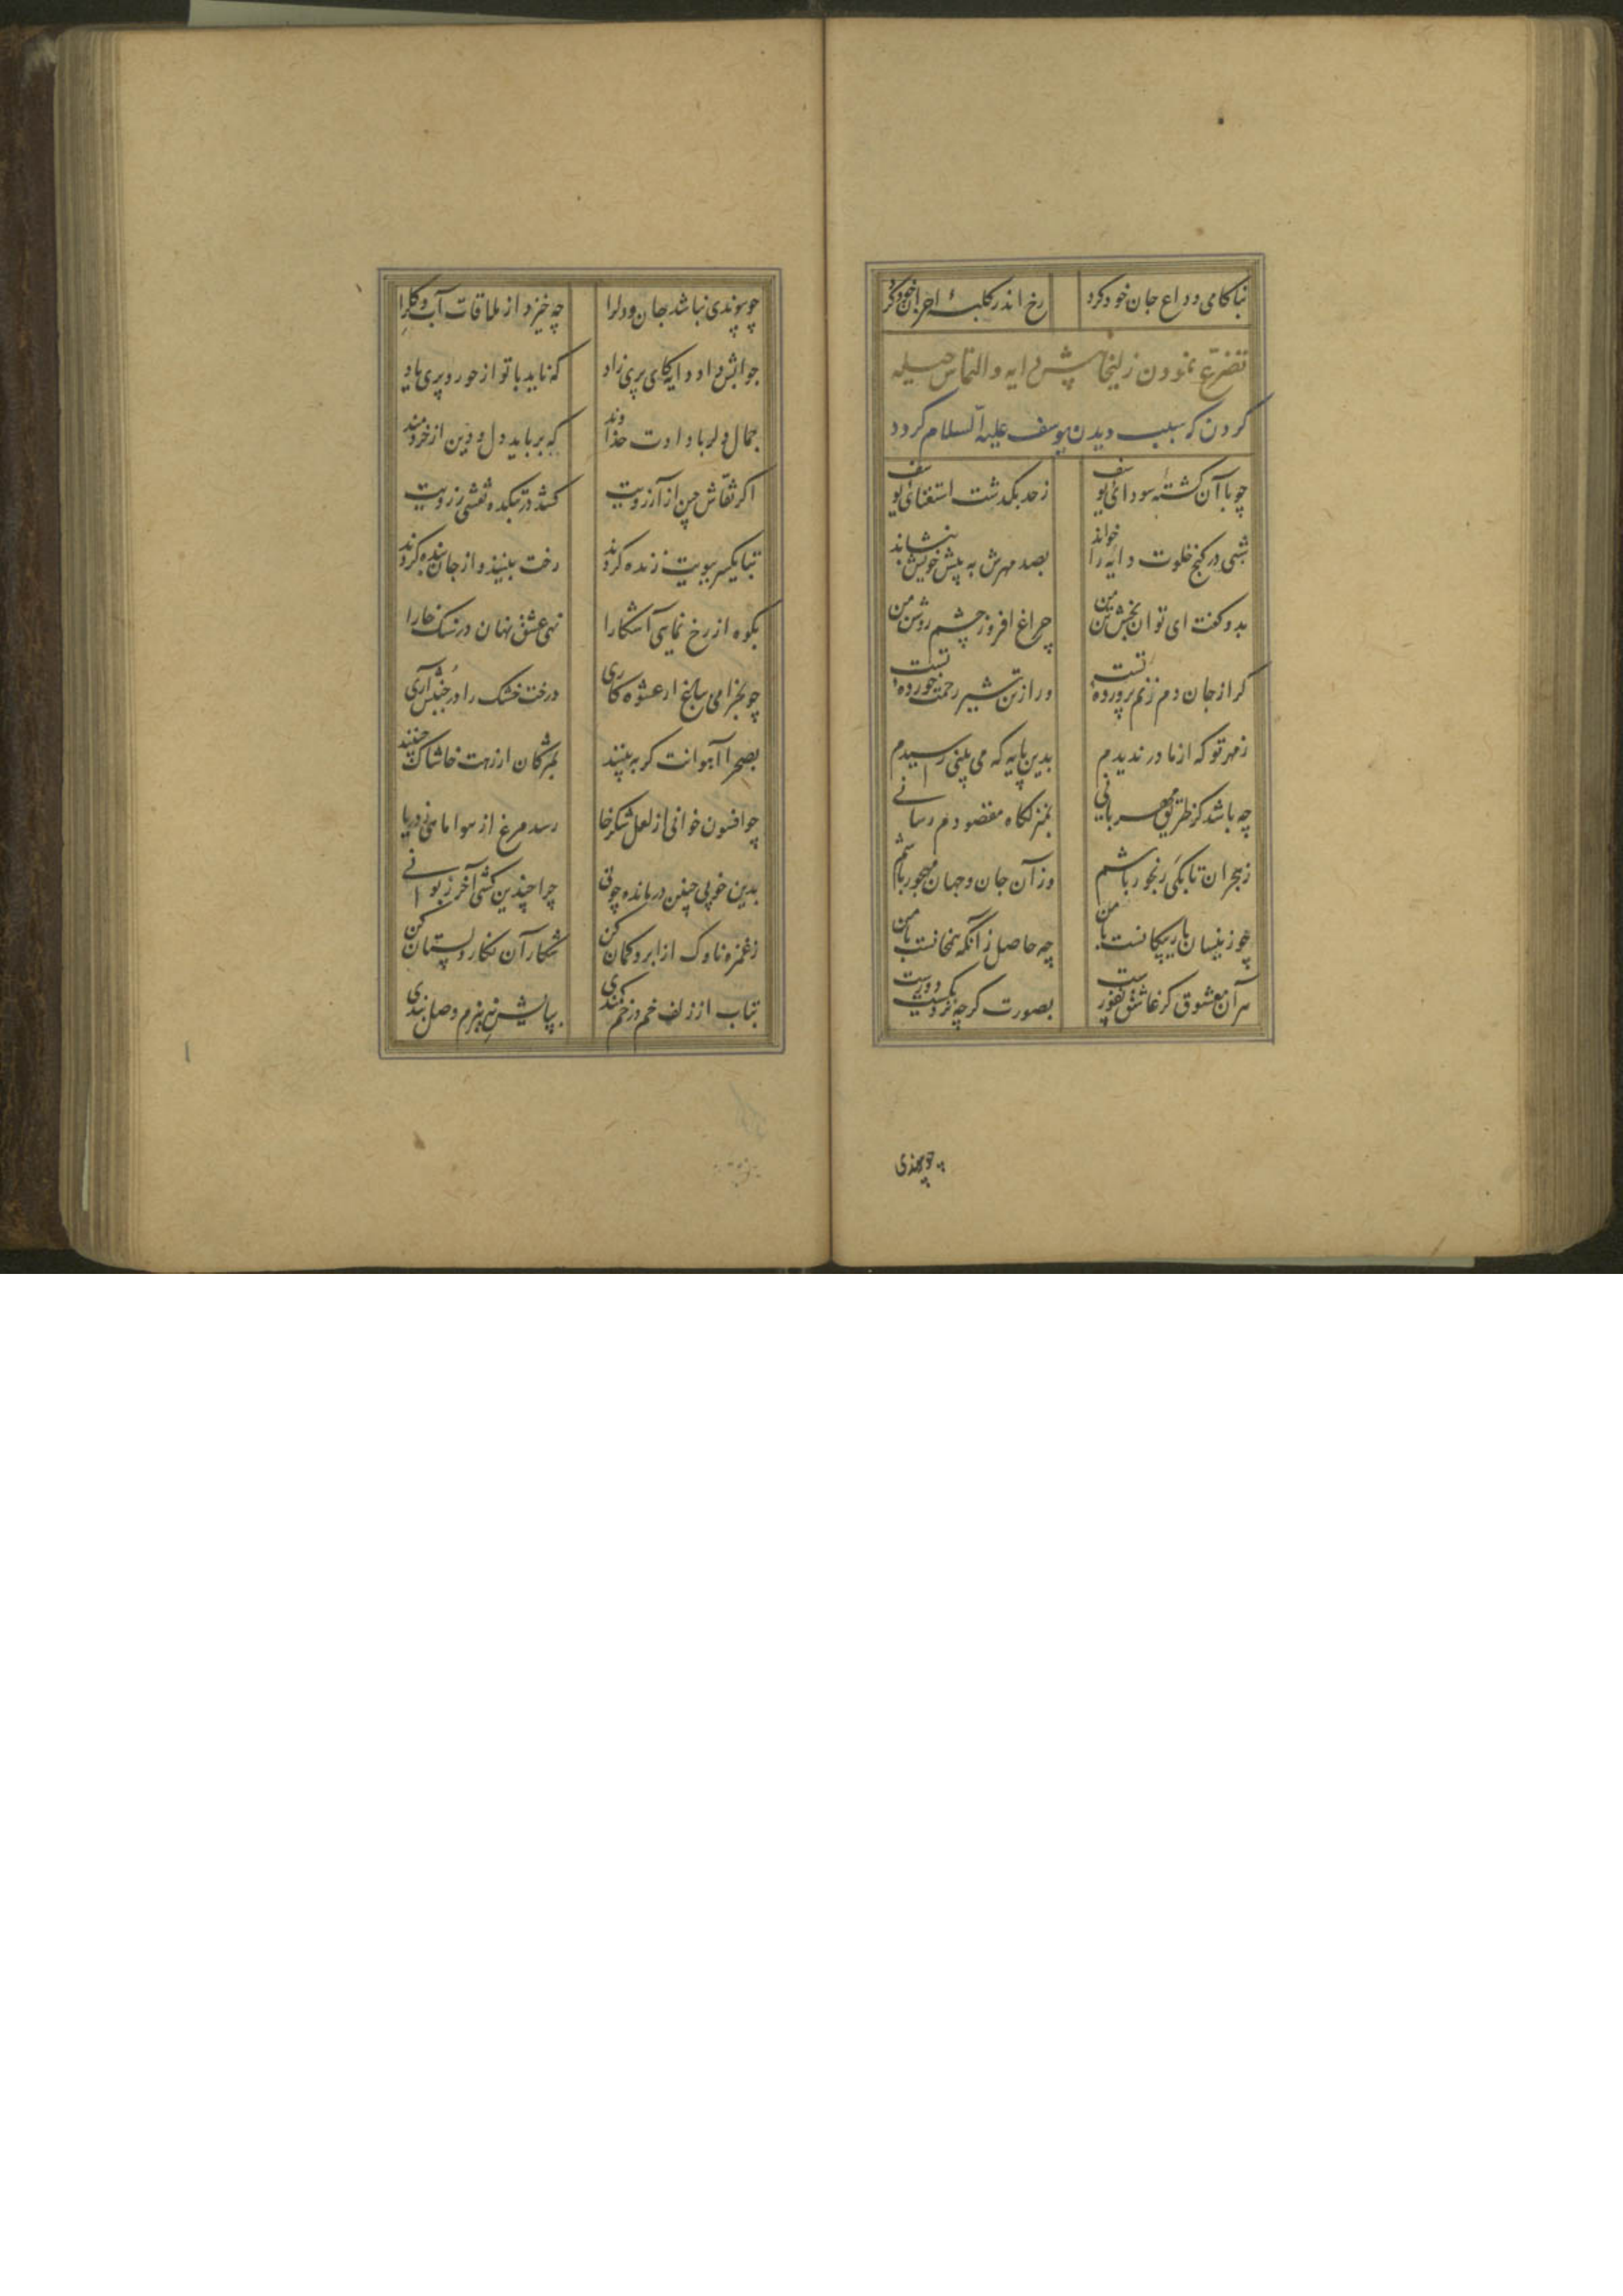 بناکامی وداع جان خود کرد رخ اندر کلبهٔ احزان خود کرد
تضرع نمودن زلیخا پیش دایه و التماس حیله
کردن که سبب دیدن یوسف علیه السلام کردد
چو با آن کشتهٔ سودای یوسف ز حد بکذشت استغنای یوسف
شبی در کنج خلوت دایه را خواند بصد مهرش به پیش خویش بنشاند
بدو کفت ای توان بخش تن من چراغ افروز چشم روشن من
کر از جان دم زنم پروردهٔ تست ور از تن شیر رحمت خوردهٔ تست
ز مهر تو که از مادر ندیدم بدین پایه که می بینی رسیدم
چه باشد کز طریق مهربانی بمنزلکاه مقصودم رسانی
ز هجران تا بکی رنجور باشم وز آن جان و جهان مهجور باشم
چو زینسان یار بیکانست با من چه حاصل زآنکه همخانست با من
هر آن معشوق کز عاشق نفورست بصورت کرچه نزدیکست دورست
چو پیوندی
چو پیوندی نباشد جان و دلرا چه خیزد از ملاقات آب و کلرا
جوابش داد دایه کای پری زاد که ناید با تو از حور و پری یاد
جمال دلربا دادت خداوند که برباید دل و دین از خردمند
اکر نقاش چین از آرزویت کشد در بتکده نقشی ز رویت
بتان یکسر ببویت زنده کردند رخت بینند و از جان بنده کردند
بکوه از رخ نمایی آشکارا نهی عشق نهان در سنک خارا
چو بخرامی بباغ از عشوه کاری درخت خشک را در جنبش آری
بصحرا آهوانت کر به بینند بمژکان از رهت خاشاک چینند
چو افسون خوانی از لعل شکرخا رسد مرغ از هوا ماهی ز دریا
بدین خوبی چنین درمانده چونی چرا چندین کشی آخر زبونی
ز غمزه ناوک از ابرو کمان کن شکار آن نکار دلستان کن
بتاب از زلف خم در خم کمندی بپایش نه ببزم وصل بندی